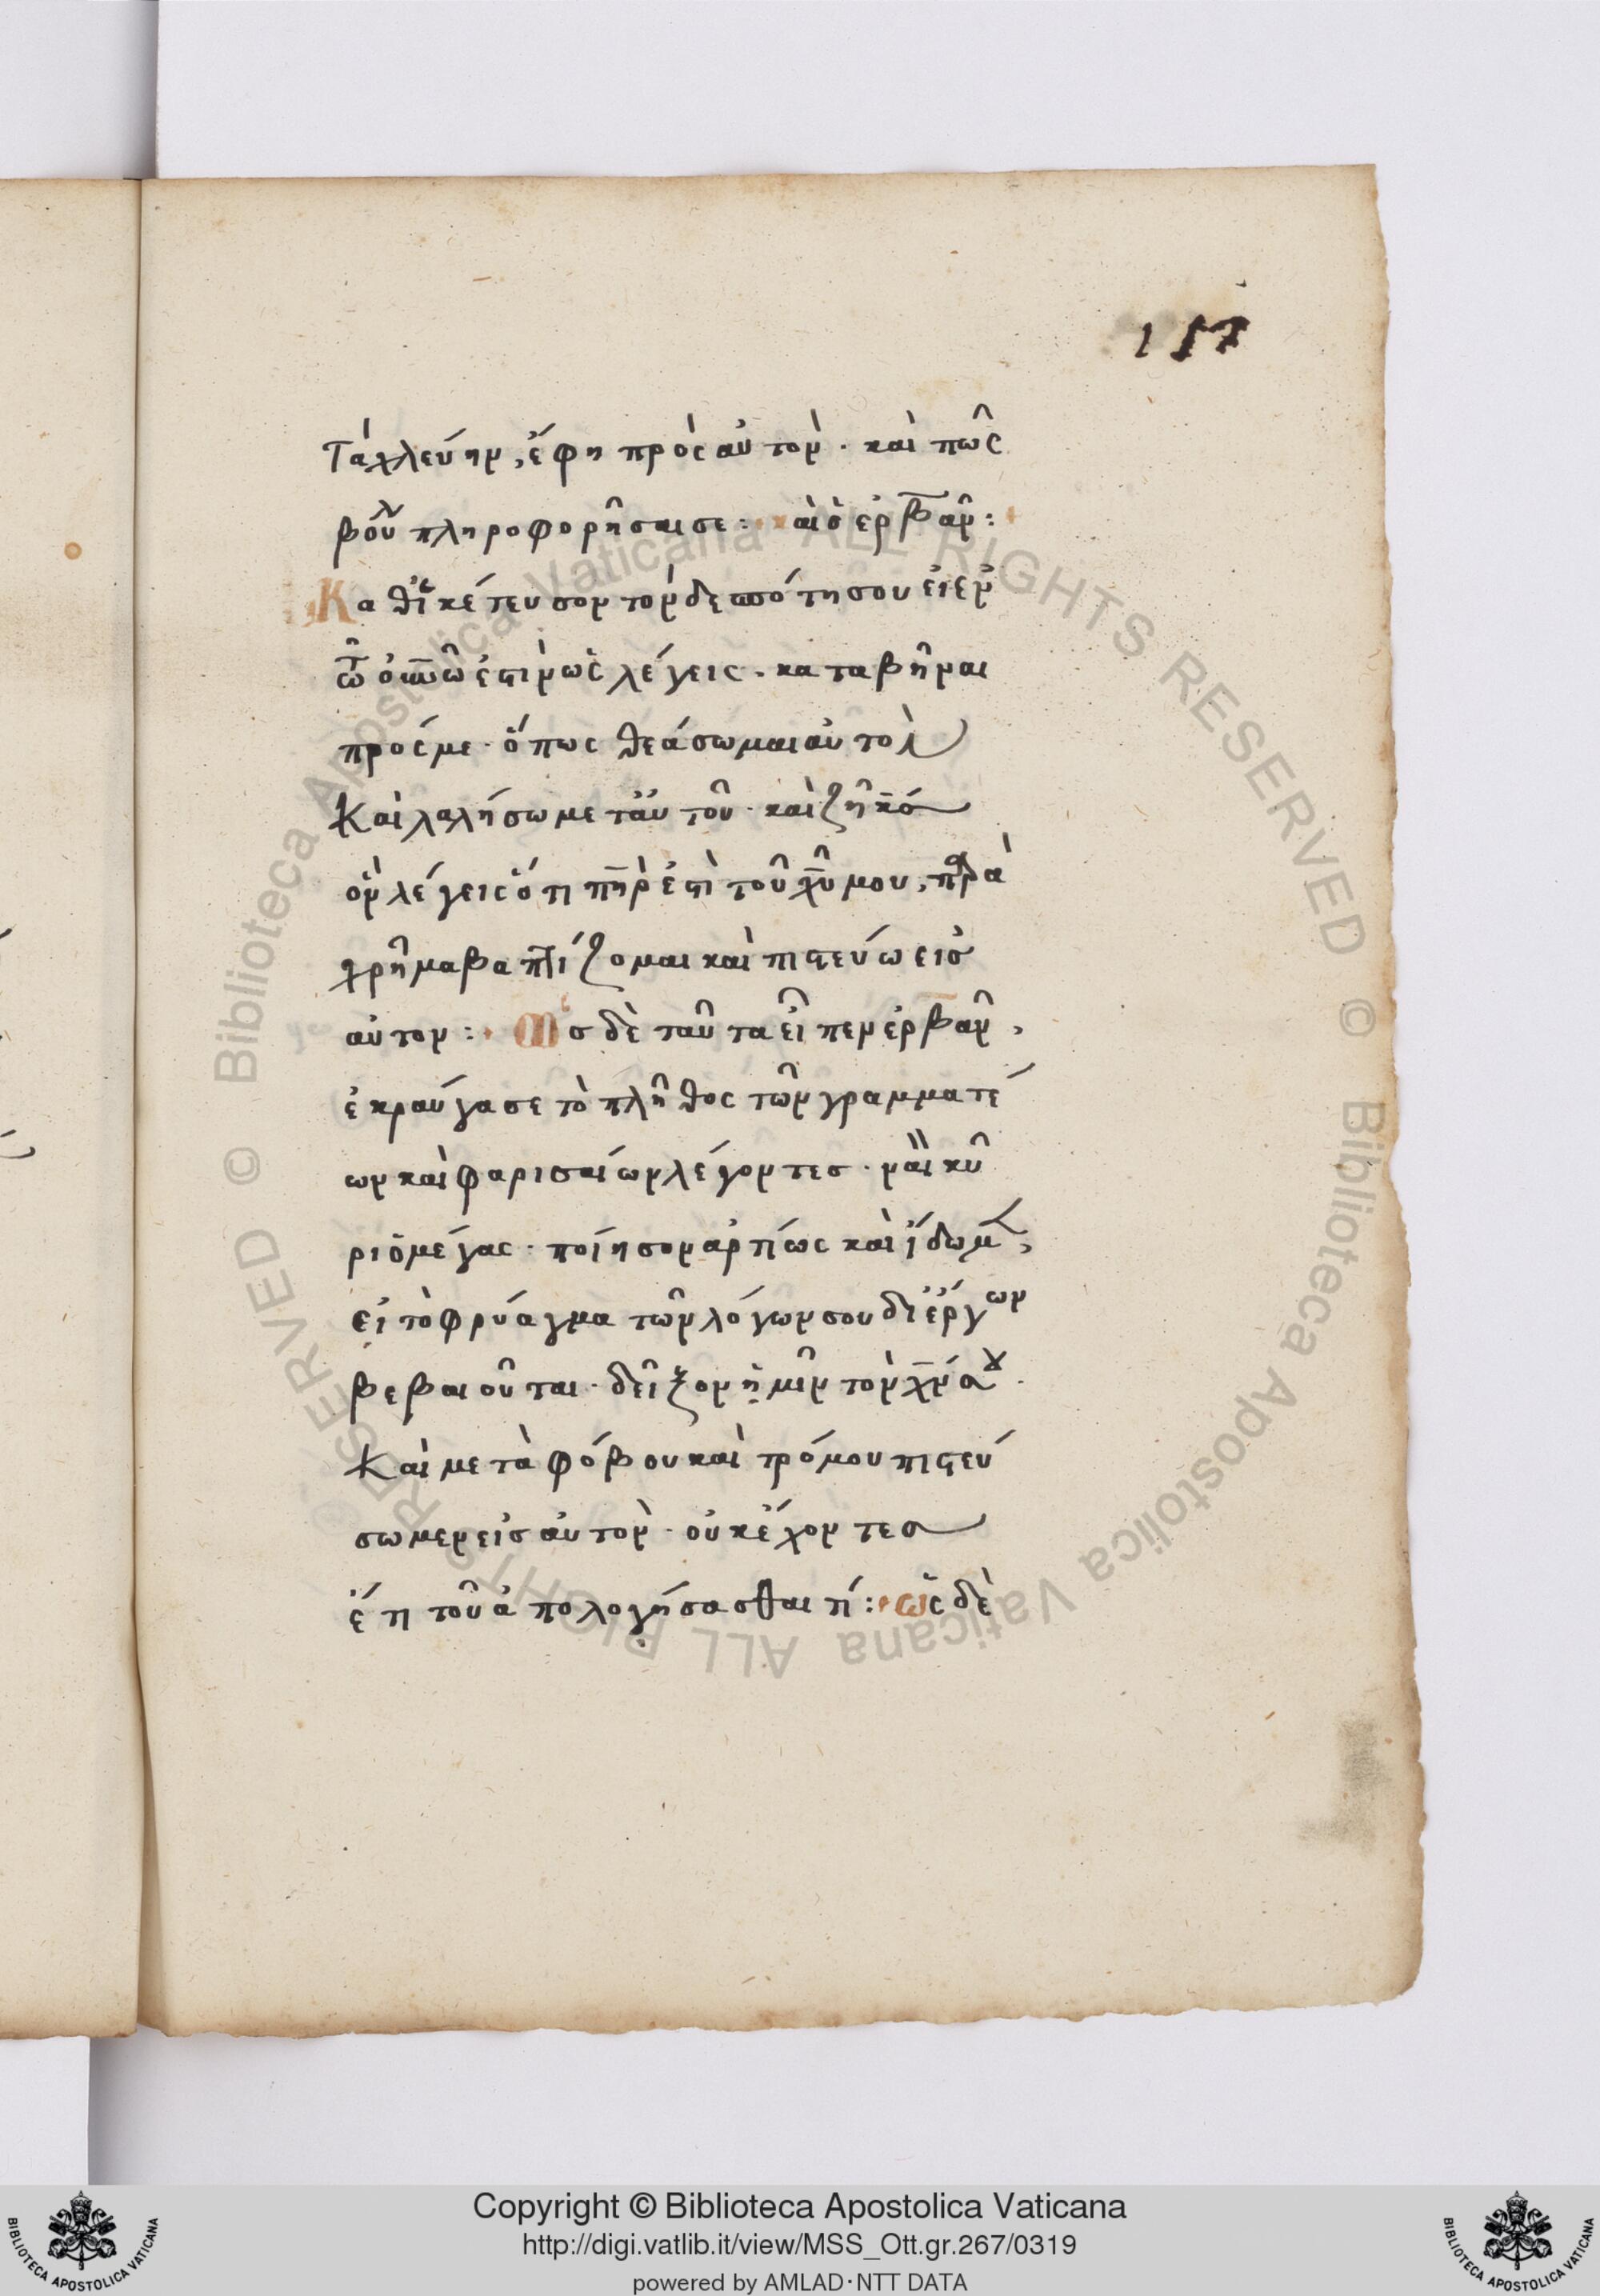 157
τὰ χλεύην, ἔφη πρὸς αὐτὸν· καὶ πῶς
βούλ πληροφορῆσαί σε: καὶ ὁ ἐρβὰν:
Καθικέτευσον τὸν δεσπότη σου εἰ ἐν
τῶ ὀπνῶ ἐστὶν ὡς λέγεις· καταβῆναι
πρός με· ὅπως θεάσωμαι αὐτὸν
καὶ λαλήσω μετ' αὐτοῦ· καὶ ζῆ κς ὁ
ὃν λέγεις ὅτι πηρ ἐστὶ τοῦ χυ μου, παρα
χρῆμα βαπτίζομαι καὶ πιστεύω εἰς
αὐτον: Ὡς δὲ ταῦτα εἶπεν ἐρβὰν,
ἐκραύγασε τὸ πλῆθος τῶν γραμματέ
ων καὶ φαρισαίων λέγοντες· ναὶ κύ
ρι ὁ μέγας· ποίησον ἀρτίως καὶ ἴδωμ,
εἰ τὸ φρύαγμα τῶν λόγων σου δι' ἔργων
βεβαιοῦται· δεῖξον ἡμῖν τὸν χν σου·
καὶ μετὰ φόβου καὶ τρόμου πιστεύ
σωμεν εἰς αὐτὸν· οὐκ ἔχοντες
ἔτι τοῦ ἀπολογήσασθαι τί: ὡς δὲ
Copyright © Biblioteca Apostolica Vaticana
http://digi.vatlib.it/view/MSS_Ott.gr.267/0319
powered by AMLAD·NTT DATA
BIBLIOTECA APOSTOLICA VATICANA
BIBLIOTECA APOSTOLICA VATICANA
© Biblioteca Apostolica Vaticana ALL RIGHTS RESERVED © Biblioteca Apostolica Vaticana ALL RIGHTS RESERVED